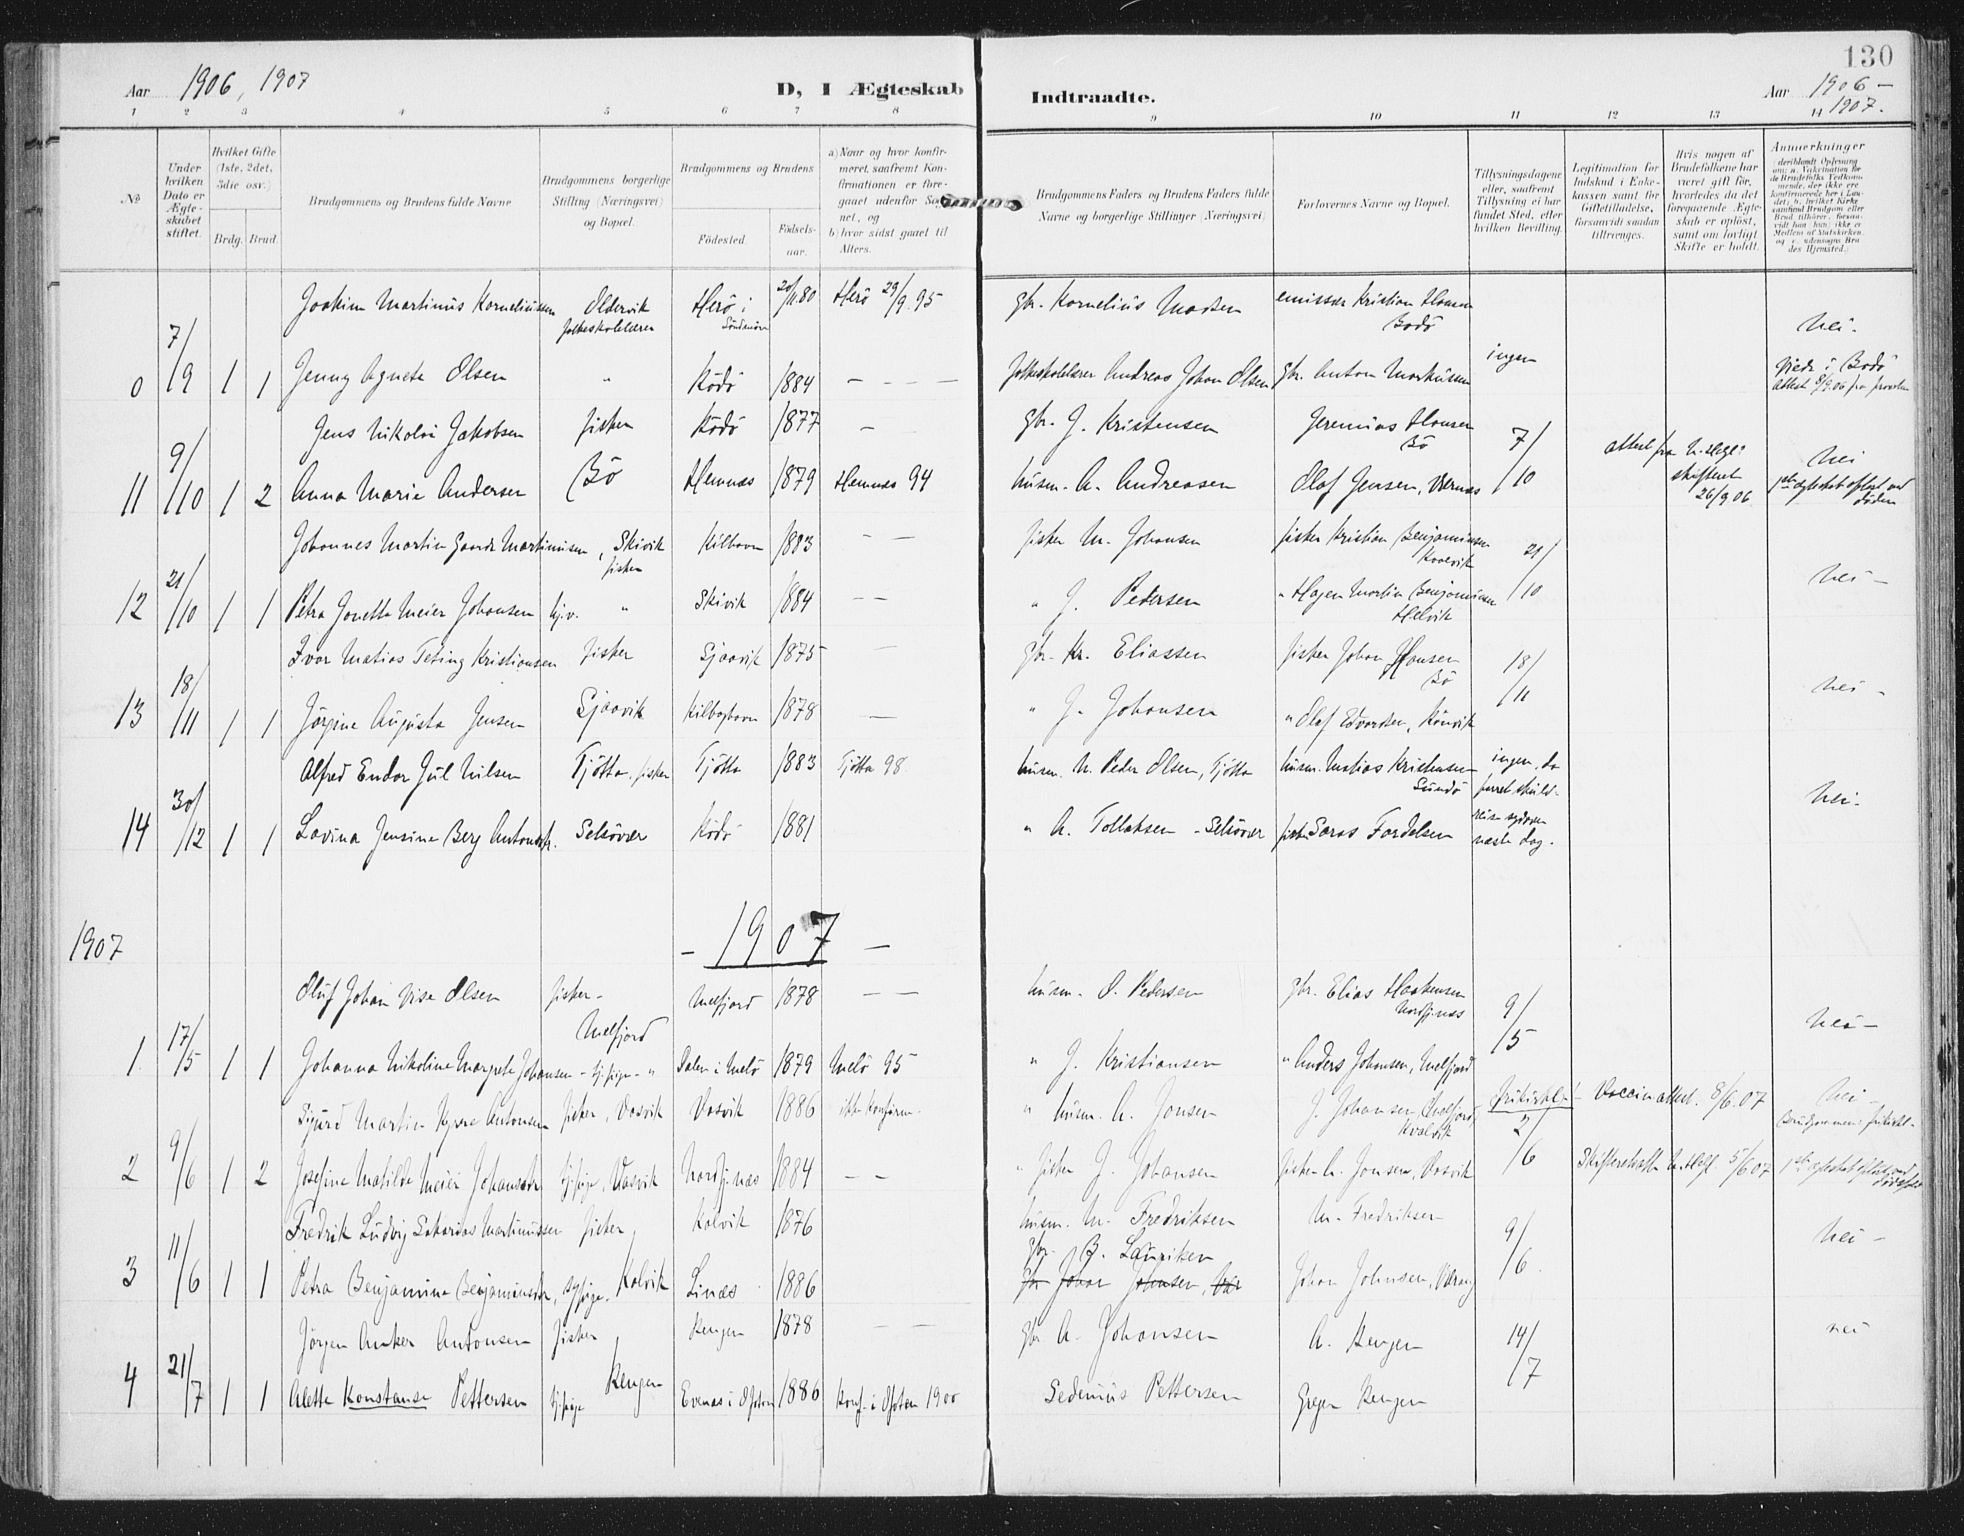 130
Aar 1906, 1907
D, I Ægteskab Indtraadte.
Aar 1906 –
1907.
1 2 3 4 5 6 7 8 9 10 11 12 13 14
No
Under hvilken Dato er Ægteskabet stiftet.
Hvilket Gifte (1ste, 2det, 3die osv.)
Brdg. Brud.
Brudgommens og Brudens fulde Navne
Brudgommens borgerlige Stilling (Næringsvei) og Bopæl.
Brudgommens og Brudens
Fødested.
Fødselsaar.
a) Naar og hvor konfirmeret, saafremt Konfirmationen er foregaaet udenfor Sognet, og
b) hvor sidst gaaet til Alters.
Brudgommens Faders og Brudens Faders fulde Navne og borgerlige Stillinger (Næringsvei)
Forlovernes Navne og Bopæl.
Tillysningsdagene eller, saafremt Tillysning ei har fundet Sted, efter hvilken Bevilling.
Legitimation for Indskud i Enkekassen samt for Giftetilladelse, forsaavidt saadan tiltrænges.
Hvis nogen af Brudefolkene har været gift før, hvorledes da det foregaaende Ægteskab er opløst, samt om lovligt Skifte er holdt.
Anmærkninger
Joakim Martinus Korneliussen Oldervik folkeskolelærer Herö i Söndmör 20/11.80 Herö 29/9.95 gbr. Kornelius Madsen emissær Kristian Hansen Bodö nei.
0 7/9 1 1 Jenny Agnete Olsen " Rödö 1884 – – – folkeskolelærer Andreas Johan Olsen gbr. Anton Markussen ingen Viede i Bodö
attest 8/9.06 fra provsten
Jens Nikolai Jakobsen fisker Rödö 1877 – gbr. J. Kristensen Jeremias Hansen Bö
11 9/10 1 2 Anna Marie Andersen Bö Hemnæs 1879 Hemnæs 94 husm. A. Andreasen Olaf Jensen, Værnæs 7/10 attest fra N. Helgl. skifteret 26/9.06 nei
1ste ægteskab opløst ved døden
Johannes Martin Martinusen, Skivik fisker Kilhavn 1883 – – fisker M. Johansen fisker Kristian Benjaminsen
12 21/10 1 1 Petra Jonetta Meier Johansen tj.p. " Skivik 1884 – – " J. Pedersen " Hagen Martin Benjaminsen Helvik 21/10 nei –
Ivar Matias Teting Kristiansen fisker Sjaavik 1875 – gbr. Kr. Eliassen fisker Johan Hansen Bö
13 18/11 1 1 Jörgine Augusta Jensen Sjaavik Kilboghavn 1878 – " J. Johansen " Olaf Edvardsen, Rönvik 18/11 nei –
Alfred Endor Jul Nilsen Tjötta. fisker Tjötta 1883 Tjötta 98. husm. N. Peder Olsen, Tjötta husm. Matias Kristensen Sundö ingen, da
14 30/12 1 1 Lovina Jensine Berg Antonsdtr. Selsövær Rödö 1881 " A. Tollaksen – Selsövær næste dag. nei.
1907 – 1907 –
Oluf Johan Vise Olsen fisker – Melfjord 1878 – – husm. O. Pedersen gbr. Elias Haakensen Nordfj.næs
1. 17/5 1 1 Johanna Nikoline Margrete Johansen – tj.pige – " Melfjord Dalen i Melö 1879 Melö 95 " J. Kristiansen " Anders Johansen, Melfjord 9/5 nei –
Sigurd Martin Antonsen fisker, Vasvik Vasvik 1886 ikke konfirm. " husm. A. Jonsen J. Johansen, Melfjord, Kvalvik Vaccin attest. 8/6.07 nei –
2 9/6 1 2 Josefine Matilde Meier Johansdtr tj.pige, Vasvik Nordfj.næs 1884 – – " fisker J. Johansen fisker A. Jonsen, Vasvik 2/6 Skifteretsatt. N. Helg. 5/6.07
Fredrik Ludvig Sakarias Martinussen fisker, Kolvik 1876 husm. M. Fredriksen M. Fredriksen
gbr. B. Lauritzen
3 11/6 1 1 Petra Benjamine Benjaminsdtr, sypige. Kolvik Linæs 1886 gbr Johan Johansen, Johan Johnsen, 9/6. nei –
Jörgen Anker Antonsen fisker, Rengen 1878 – – gbr A. Johansen A. Rengen nei
4 21/7 1 1 Alette Konstanse Pettersen tj.pige Rengen Evenæs i Ofoten 1886 konf. i Ofoten 1900 Sedenius Pettersen Rengen 14/7